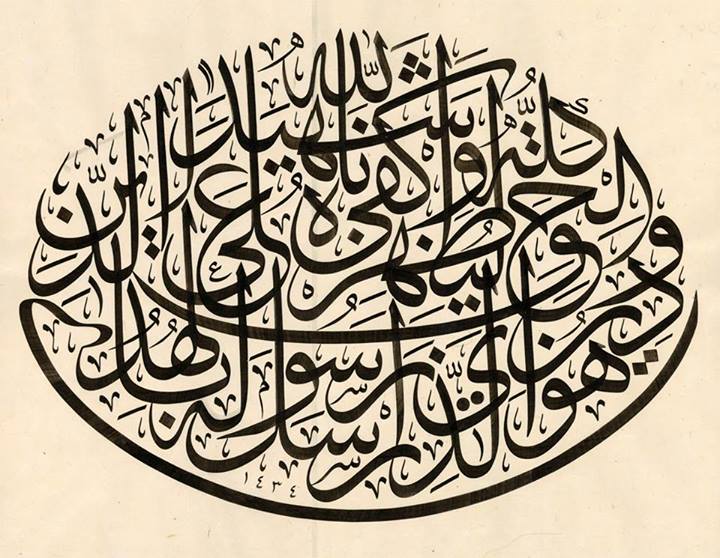 هو الذي أرسل رسوله بالهدى
ودين الحق ليظهره على الدين
كله وكفى بالله شهيدا
١٤٣٤